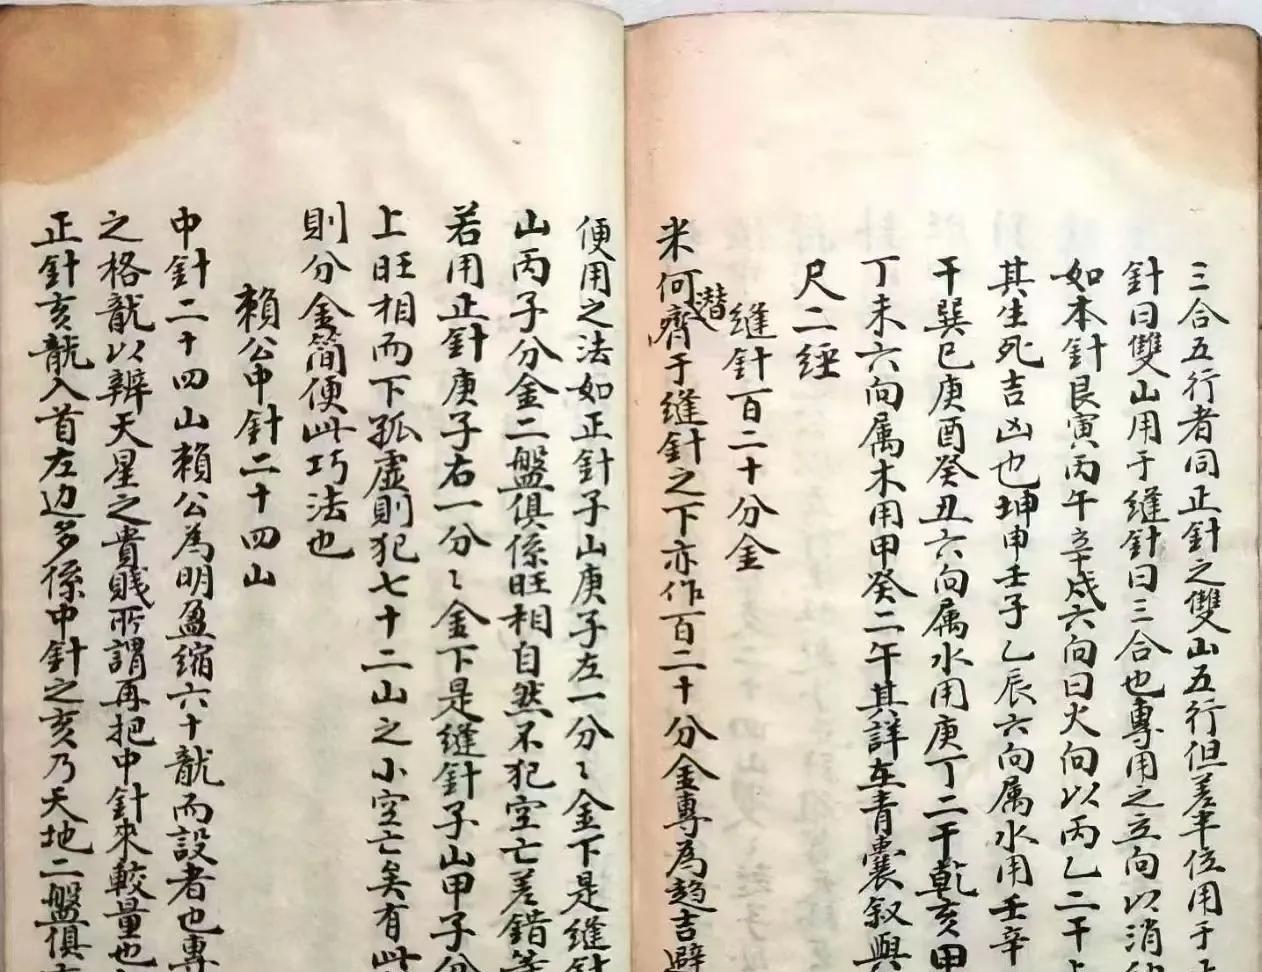 三合五行者同正針之雙山五行但差半位用于正
針曰雙山用于縫針曰三合也專用之立向以消納
如本針艮寅丙午辛戌六向曰火向以丙乙二干上
其生死吉凶也坤申壬子乙辰六向属水用壬辛
干巽巳庚酉癸丑六向属水用庚丁二干乾亥甲
丁未六向属木用甲癸二午其詳在青囊叙與
尺二經
縫針百二十分金
米何潛齊于縫針之下亦作百二十分金專為趨吉避
便用之法如正針子山庚子左一分〻金下是縫針
山丙子分金二盤俱係旺相自然不犯空亡差錯等
若用正針庚子右一分〻金下是縫針子山甲子分
上旺相而下孤虛則犯七十二山之小空亡矣有此
則分金簡便此巧法也
賴公中針二十四山
中針二十四山賴公為明盈缩六十龍而設者也專
之格龍以辨天星之貴賤所謂再把中針來較量也
正針亥龍入首左边多係中針之亥乃天地二盤俱